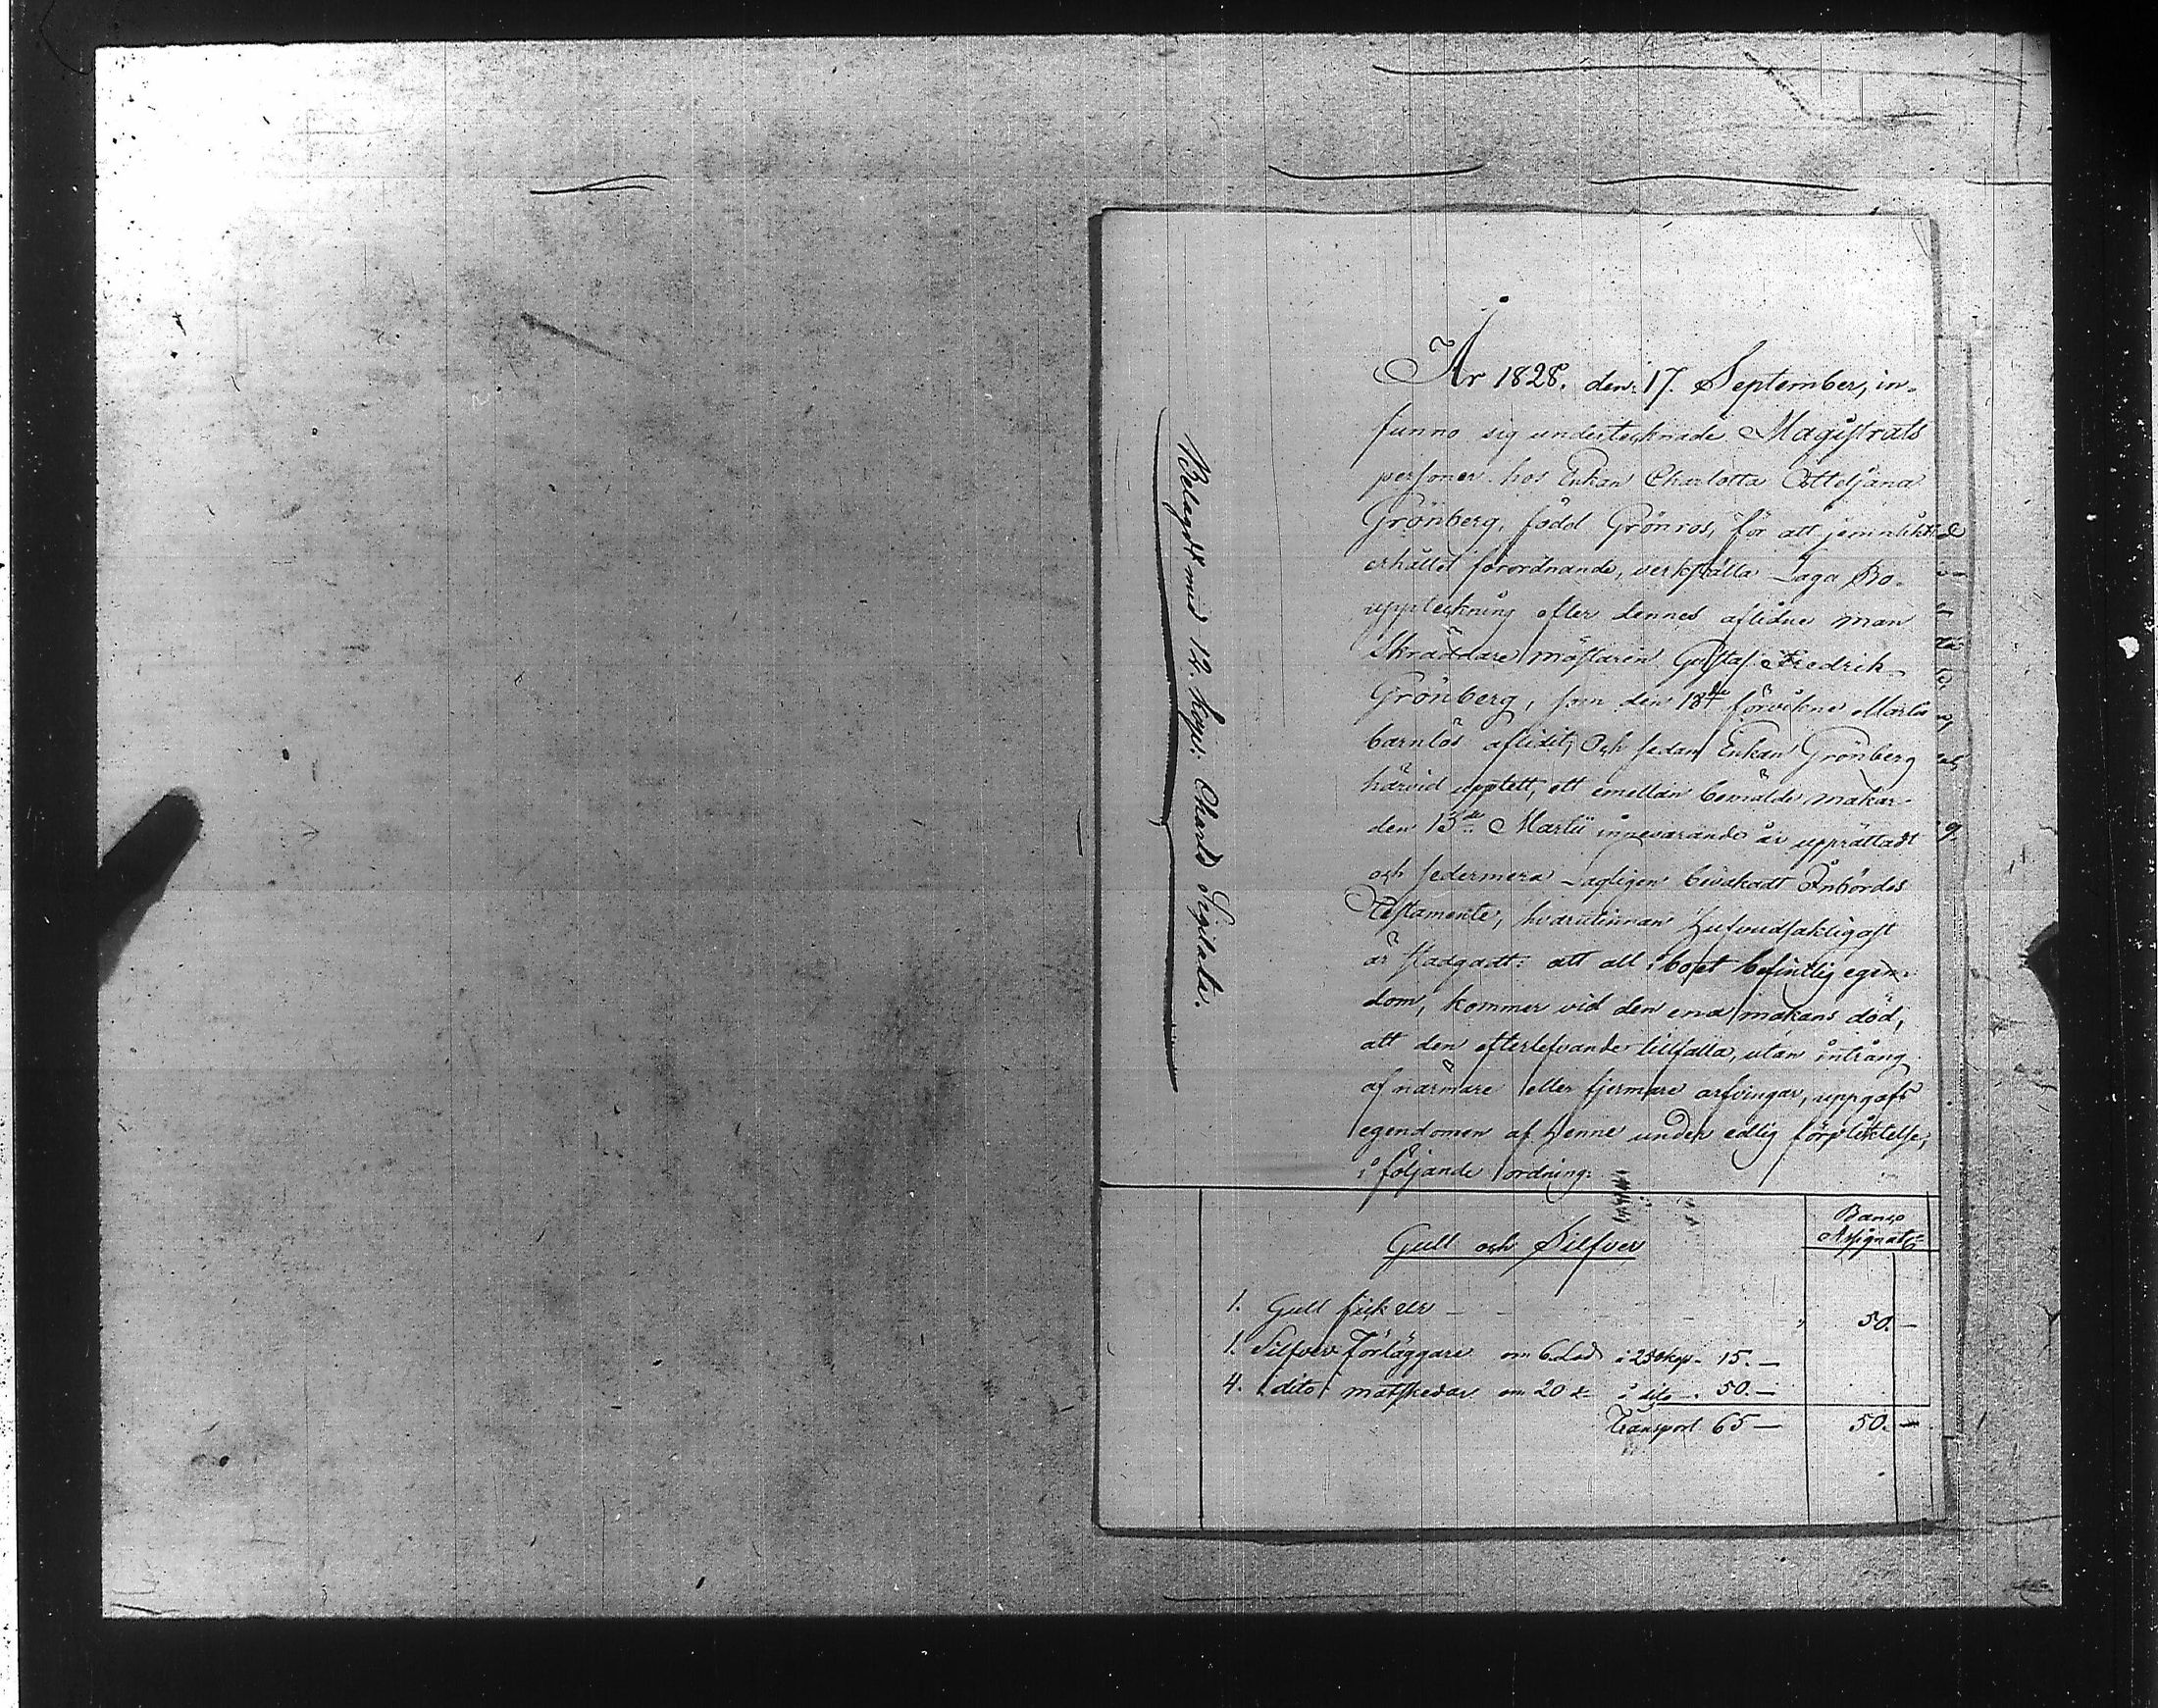 Belagdt med 12. kops: Charta Sigilata.
År 1828. den 17. September, in-
funno sig undertecknade Magistrats
personer hos Enkan Charlotta Otteljana
Grönberg, född Grönros, för att jemnlikt
erhållet förordnande, verkställa Laga Bo-
uppteckning efter dennes aflidne man
Skräddare mästaren Gustaf Fredrik
Grönberg, som den 18de förvikne Martii
barnlös aflidit; Och sedan Enkan Grönberg
härvid upptett, ett emellan bemälde makar
den 13de Martii innevarande år upprättadt
och sedermera Lagligen bevakadt Inbördes
Testamente, hvarutinnan hufvudsakligast
är stadgadt: att all i boet befintlig egen-
dom, kommer vid den ena makans död,
att den efterlefvande tillfalla, utan intrång
af närmare eller fjermare arfvingar, uppgafs
egendomen af henne under edlig förpliktelse,
i följande ordning:
Banco
Assignat:
Gull och Silfver
1. Gull fick ur - - 50. -
1. Silfver Förläggare om 6 Lod à 250 kop. 15. -
4. dito matskedar om 20 d: à dito . 50. -
Transport 65 - 50. -